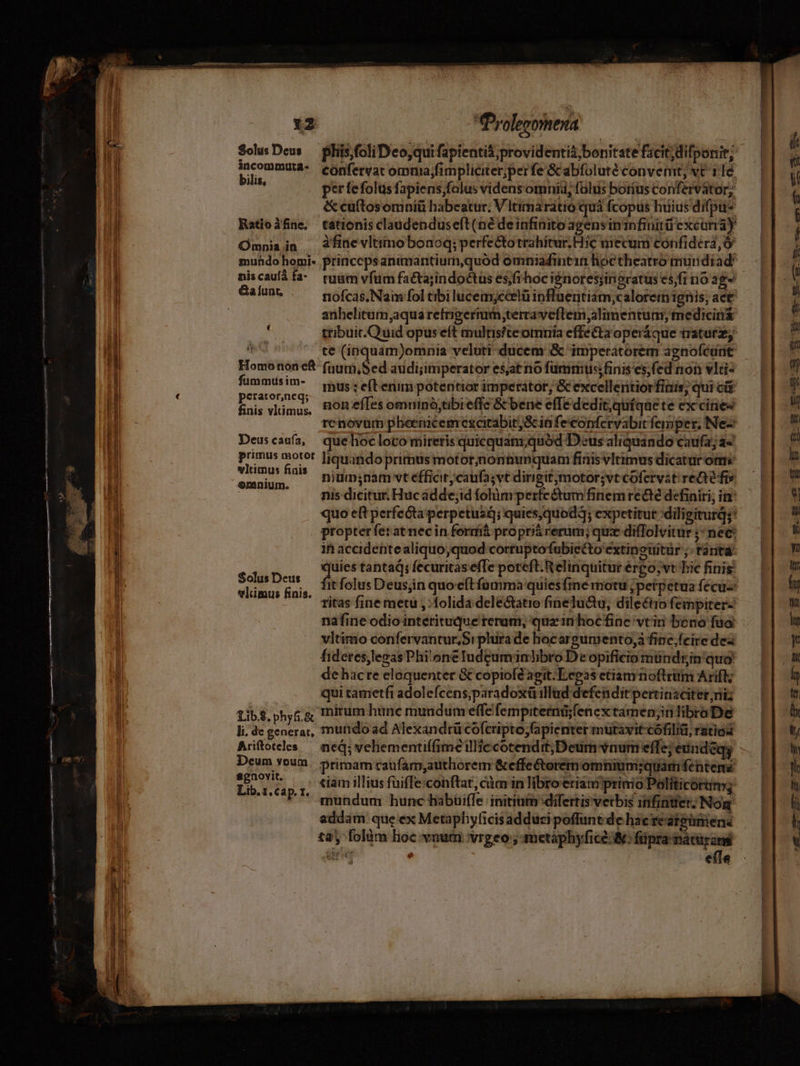 12 Prolegomena
Solus Deus incommutabilis.
phiis, soli Deo, qui sapientiâ, providentiâ, bonitate facit, disponit,
conservat omnia, simpliciter, per se & absolutè convenit, vt ille
per se solus sapiens, solus videns omniũ, solus bonus conservator,
& custos omniũ habeatur. Vltima ratio quâ scopus huius dispu-
Ratio à fine.
tationis claudendus est (nè de infinito agens in infinitũ excurrã)
Omnia in mundo hominis causâ facta sunt.
à fine vltimo bonoq; perfecto trahitur. Hic mecum considera, ô
princeps animantium, quòd omnia sint in hoc theatro mundi ad
tuum vsum facta; indoctus es, si hoc ignores; ingratus es, si nõ ag-
noscas. Nam sol tibi lucem, cœlũ influentiam, calorem ignis, aer
anhelitum, aqua refrigerium, terra vestem, alimentum, medicinã
tribuit. Quid opus est multis? te omnia effecta operáque naturæ,
te (inquam) omnia veluti ducem & imperatorem agnoscunt
Homo non est summus imperator, neq; finis vltimus.
suum. Sed audi; imperator es, at nõ summus; finis es, sed non vlti-
mus: est enim potentior imperator, & excellentior finis, qui cũ
non esses omninò, tibi esse & bene esse dedit, quíque te ex cine-
re novum phœnicem excitabit, & in se conservabit semper. Ne-
Deus causa, primus motor vltimus finis omnium.
que hoc loco mireris quicquam, quòd Deus aliquando causa, a-
liquando primus motor, nonnunquam finis vltimus dicatur om-
nium; nam vt efficit, causa; vt dirigit, motor; vt cõservat rectè fi-
nis dicitur. Huc adde, id solùm perfectum finem rectè definiri, in
quo est perfecta perpetuaq; quies, quodq; expetitur diligiturq;
propter se: at nec in formâ propriâ rerum, quæ dissolvitur; nec
in accidente aliquo, quod corrupto subiecto extinguitur; tanta
quies tantaq; securitas esse potest. Relinquitur ergo, vt hîc finis
Solus Deus vltimus finis.
sit solus Deus, in quo est summa quies sine motu, perpetua secu-
ritas sine metu, solida delectatio sine luctu, dilectio sempiter-
na sine odio interitu que rerum, quæ in hoc sine vt in bono suo
vltimo conservantur. Si plura de hoc argumento, à fine, scire de-
sideres, legas Philonẽ Iudęum in libro De opificio mundi, in quo
de hac re eloquenter & copiosè agit. Legas etiam nostrum Arist.
qui tametsi adolescens, paradoxũ illud defendit pertinaciter, ni-
Lib. 8. phys. & li. de generat.
mirum hunc mundum esse sempiternũ; senex tamen, in libro De
mundo ad Alexandrũ cõscripto, sapienter mutavit cõsiliũ, ratio-
Aristoteles Deum vnum agnovit. Lib. 1. cap. 1.
neq; vehementissimè illîc cõtendit, Deum vnum esse, eundẽq;
primam causam, authorem & effectorem omnium; quam senten-
tiam illius fuisse constat, cùm in libro etiam primo Politicorum,
mundum hunc habuisse initium disertis verbis insinuet. Non
addam quę ex Metaphysicis adduci possunt de hac re argumen-
ta, solùm hoc vnum vrgeo, metaphysicè & supra naturam
esse